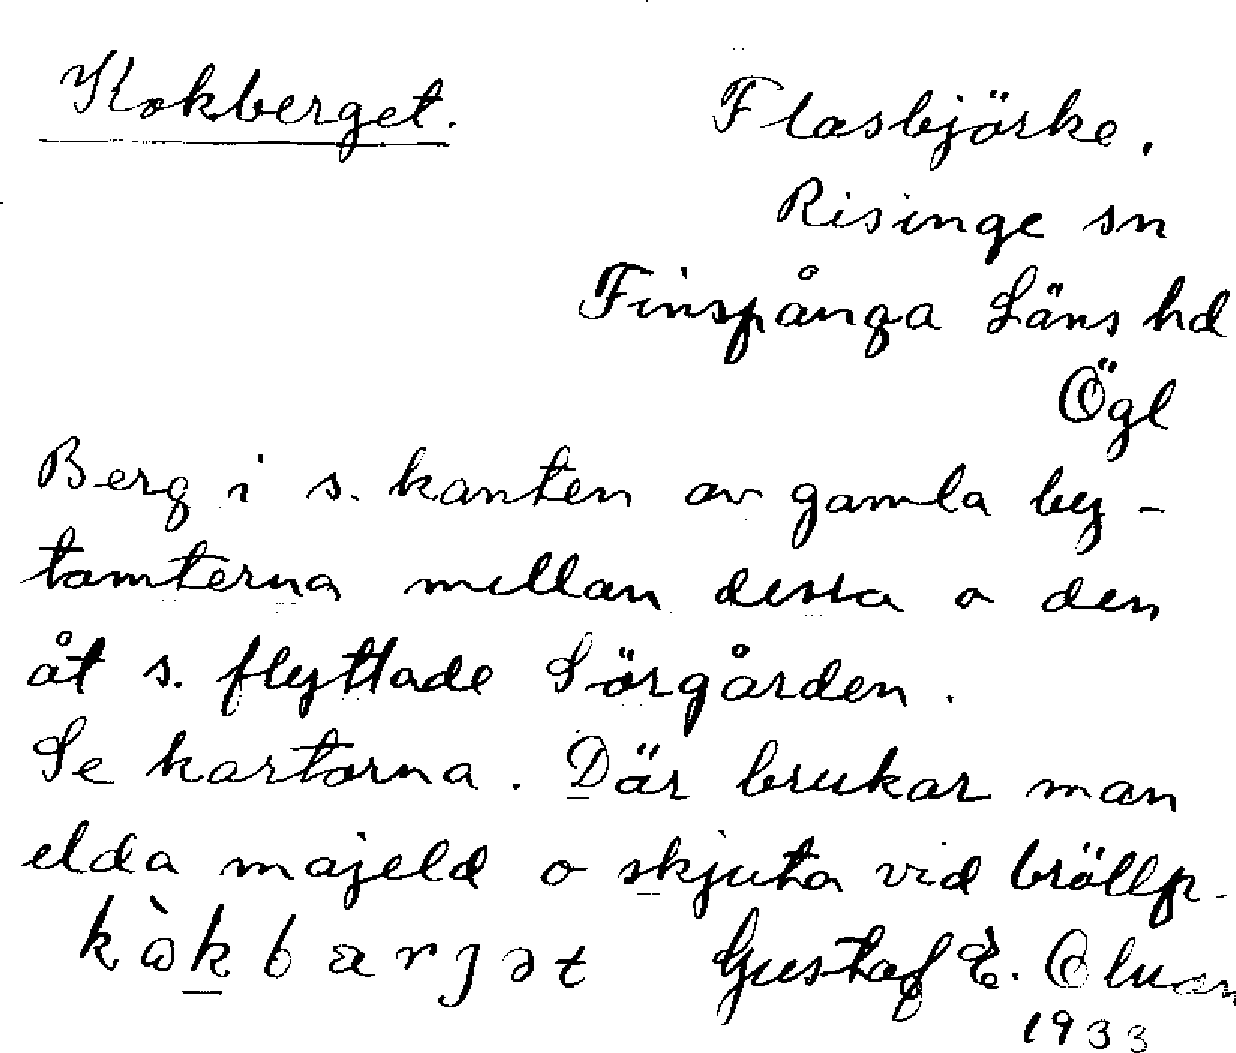 Kokberget.
Flasbjörke.
Risinge sn
Finspånga Läns hd
Ögl
Berg i s. kanten av gamla by-
tomterna mellan dessa o den
åt s. flyttade Sörgården.
Se kartorna. Där brukar man
elda majeld o skjuta vid bröllp.
Gustaf E.
1933